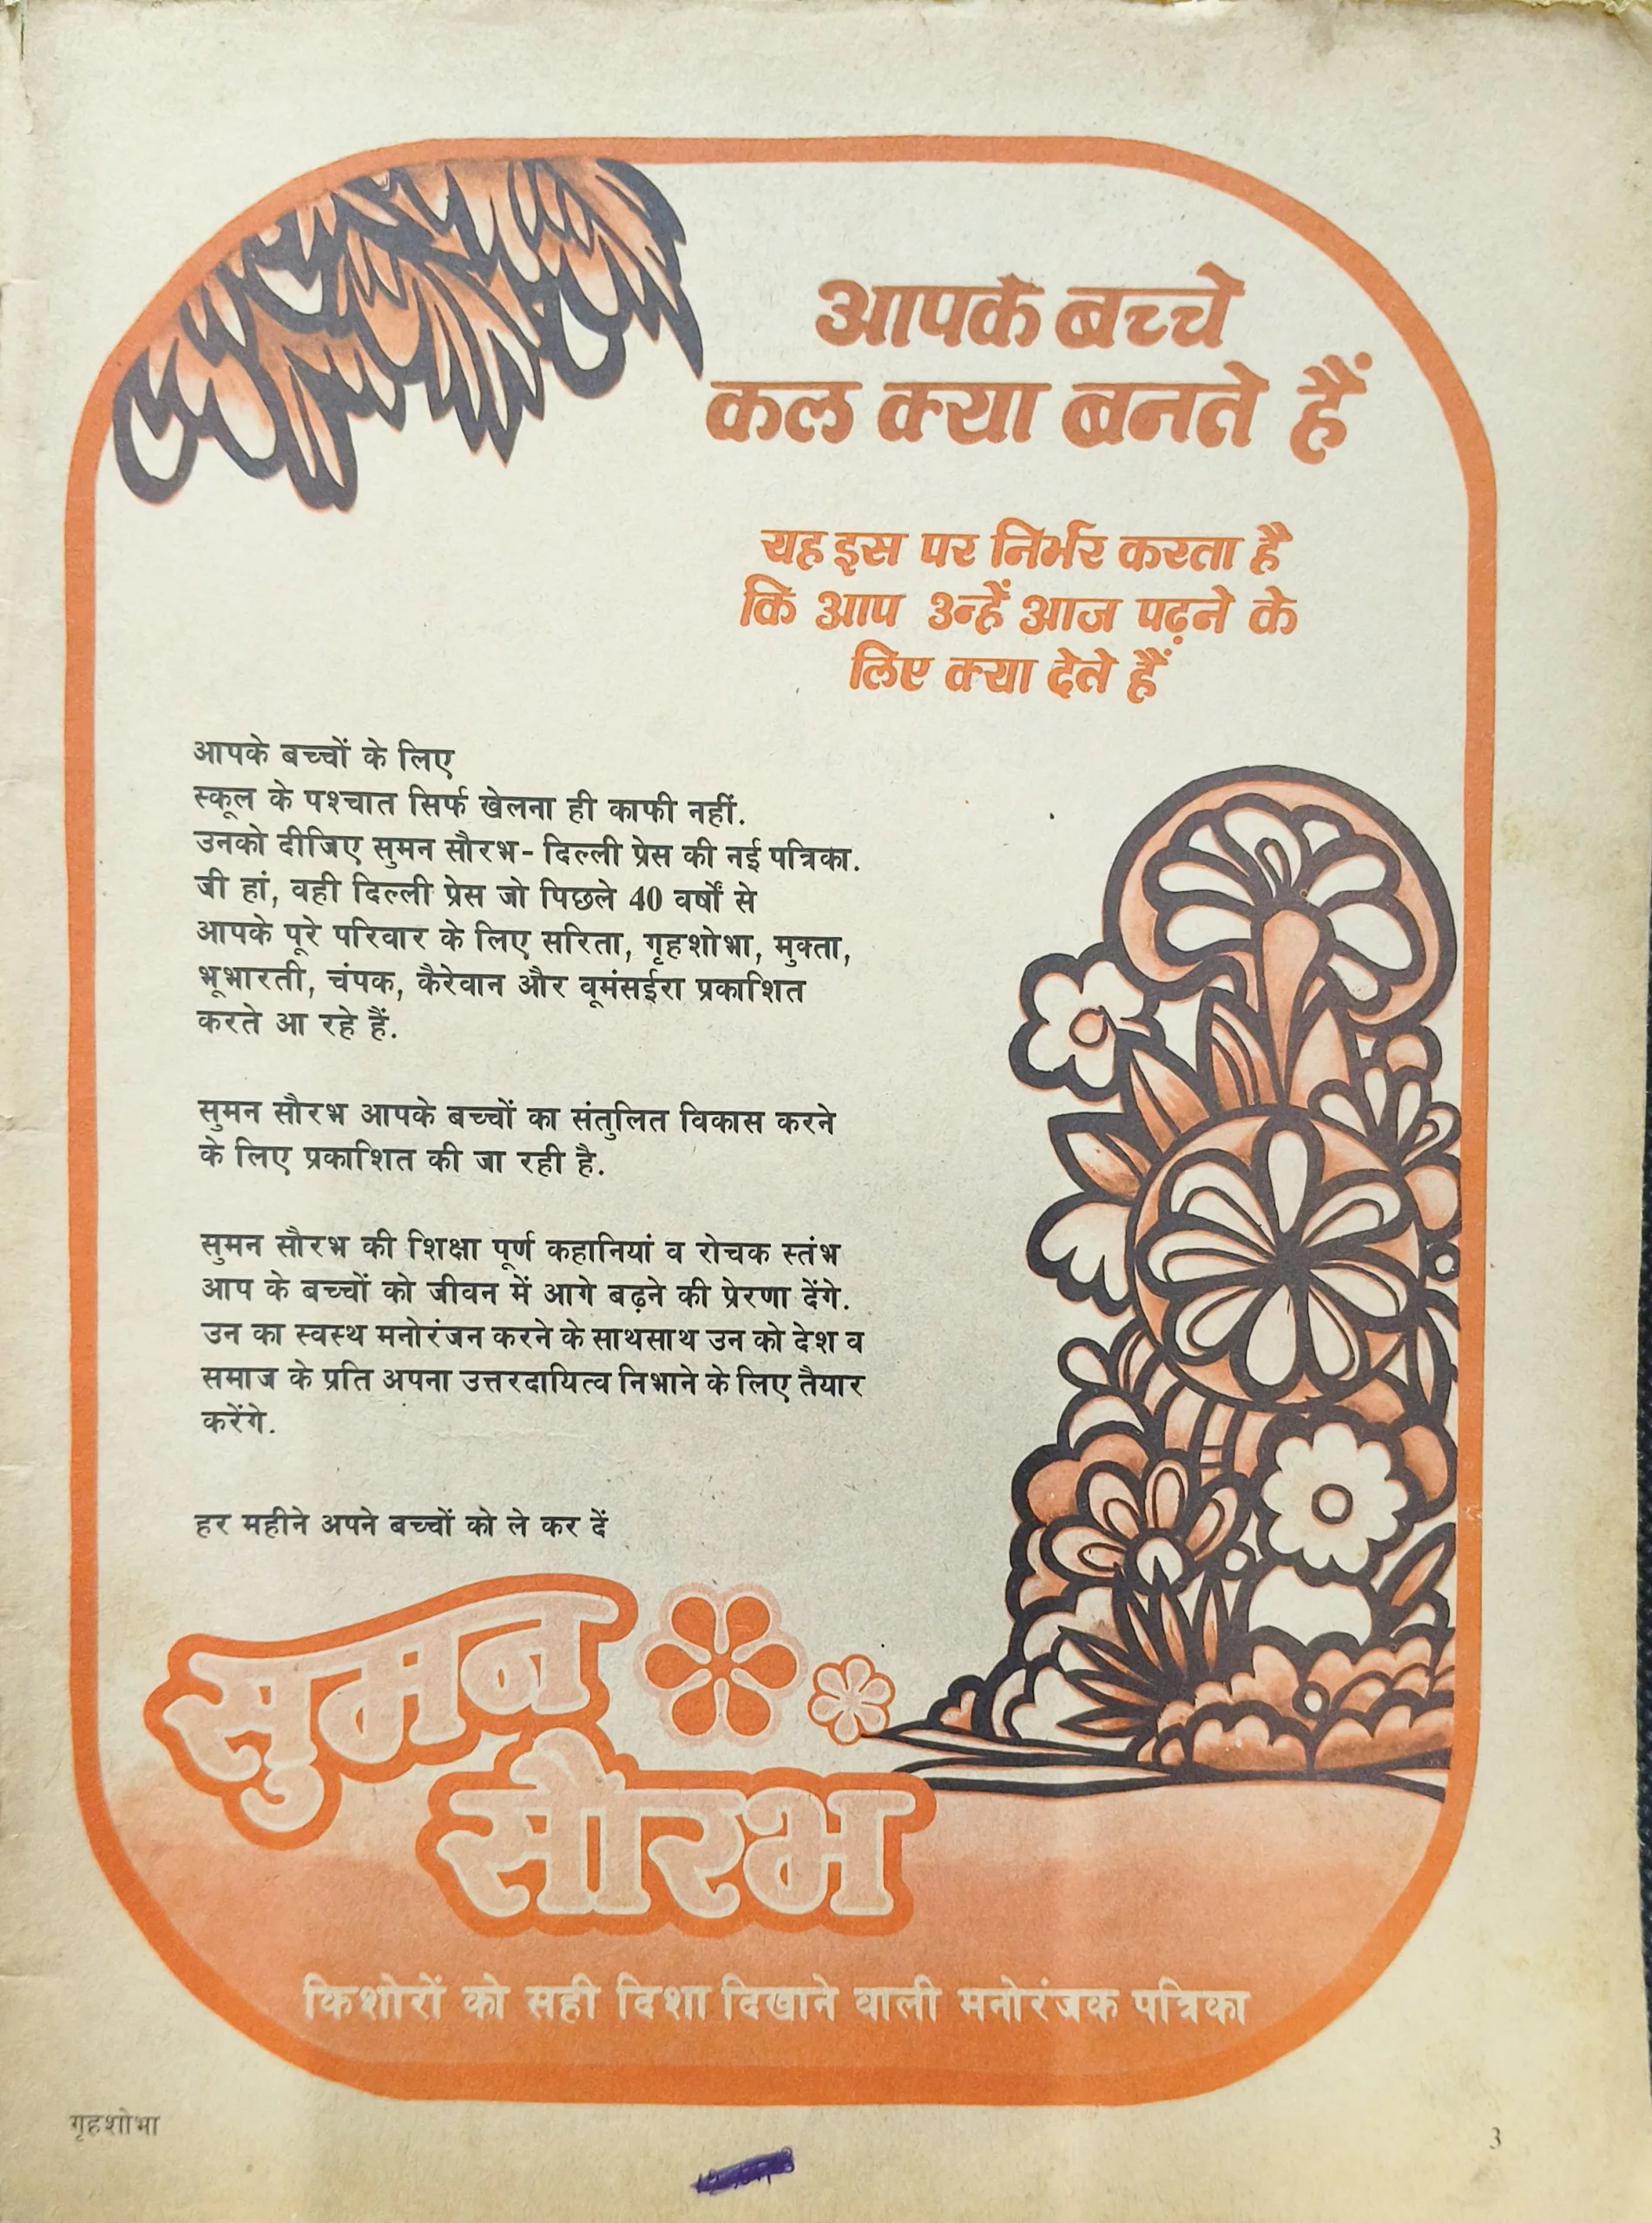 आपके बच्चे
कल क्या बनते हैं
यह इस पर निर्भर करता है
कि आप उन्हें आज पढ़ने के
लिए क्या देते हैं
आपके बच्चों के लिए
स्कूल के पश्चात सिर्फ खेलना ही काफी नहीं.
उनको दीजिए सुमन सौरभ- दिल्ली प्रेस की नई पत्रिका.
जी हां, वही दिल्ली प्रेस जो पिछले 40 वर्षों से
आपके पूरे परिवार के लिए सरिता, गृहशोभा, मुक्ता,
भूभारती, चंपक, कैरेवान और वूमंसईरा प्रकाशित
करते आ रहे हैं.
सुमन सौरभ आपके बच्चों का संतुलित विकास करने
के लिए प्रकाशित की जा रही है.
सुमन सौरभ की शिक्षा पूर्ण कहानियां व रोचक स्तंभ
आप के बच्चों को जीवन में आगे बढ़ने की प्रेरणा देंगे.
उन का स्वस्थ मनोरंजन करने के साथसाथ उन को देश व
समाज के प्रति अपना उत्तरदायित्व निभाने के लिए तैयार
करेंगे.
हर महीने अपने बच्चों को ले कर दें
सुमन
सौरभ
किशोरों को सही दिशा दिखाने वाली मनोरंजक पत्रिका
गृहशोभा
3